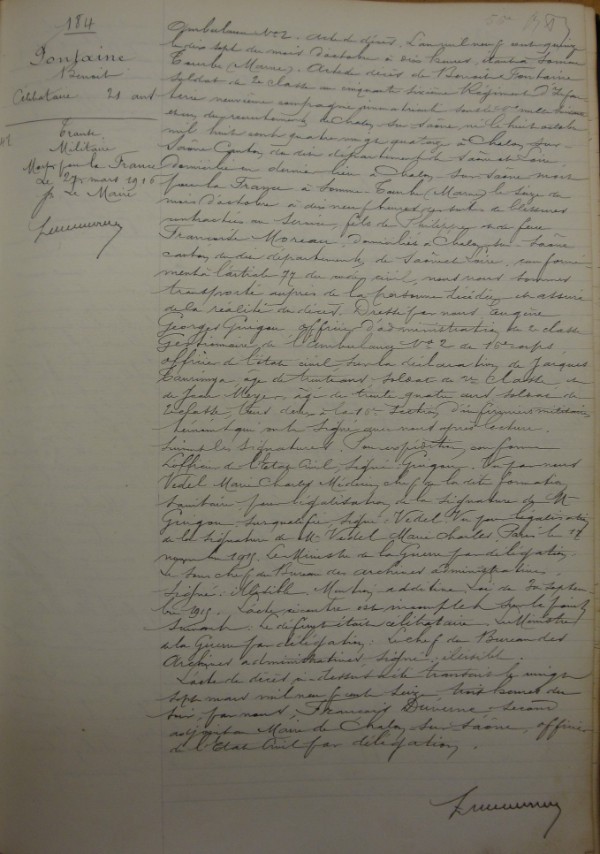 184
Fontaine
Benoit
Célibataire 21 ans
Transc
Militaire
Mort pour la France
Le 27 mars 1916
Le Maire
Ambulance No 2. Acte de décès. L'an mil neuf cent quinze
le dix sept du mois d'octobre à dix heures, étant à Somme
Tourbe (Marne). Acte de décès de Benoit Fontaine
soldat de 2e classe au cinquante sixième Régiment d'Infan
terie neuvième compagnie immatriculé sous le No mille
du recrutement de Chalon sur Saône, né le huit octobre
mil huit cent quatre vingt quatorze à Chalon sur
Saône Canton du dit département de Saône et Loire
domicilié en dernier lieu à Chalon sur Saône mort
pour la France à Somme Tourbe (Marne) le seize du
mois d'octobre à dix neuf heures des suites de blessures
contractées au service, fils de Philippe et de feue
Françoise Moreau, domiciliés à Chalon sur Saône
canton du dit département de Saône et Loire, conformé
ment à l'article 77 du code civil, nous nous sommes
transporté auprès de la personne décédée et assuré
de la réalité du décès. Dressé par nous Eugène
Georges Grégou officier d'administration de 2e classe
Gestionnaire de l'Ambulance No 2 du 16e corps
officier de l'état civil sur la déclaration de Jacques
âgé de trente ans, soldat de 2e Classe, et
de Jean Meyer, âgé de trente quatre ans soldat de
2e classe, tous deux à la 16e Section d'infirmiers militaires
témoins qui ont signé avec nous après lecture.
Suivent les signatures. Pour expédition conforme
L'officier de l'Etat Civil, signé Grégou. Vu par nous
Vedel Marie Charles Médecin chef de la dite formation
sanitaire pour légalisation de la signature de Mr
Grégou susqualifié signé: Vedel. Vu pour légalisation
de la signature de Mr Vedel Marie Charles, Paris le 17
novembre 1915. Le Ministre de la Guerre par délégation
Le Sous chef du Bureau des archives administratives
signé: illisible. Mention additive. Loi du 30 septem
bre 1915. L'acte ci contre est complété sur le point
suivant: Le défunt était célibataire. Le Ministre
de la Guerre par délégation: Le chef du Bureau des
Archives administratives signé: illisible.
L'acte de décès ci-dessus a été transcrit le vingt
sept mars mil neuf cent seize, trois heures du
soir par nous, François Duverne second
adjoint au Maire de Chalon sur Saône, officier
de l'Etat Civil par délégation.